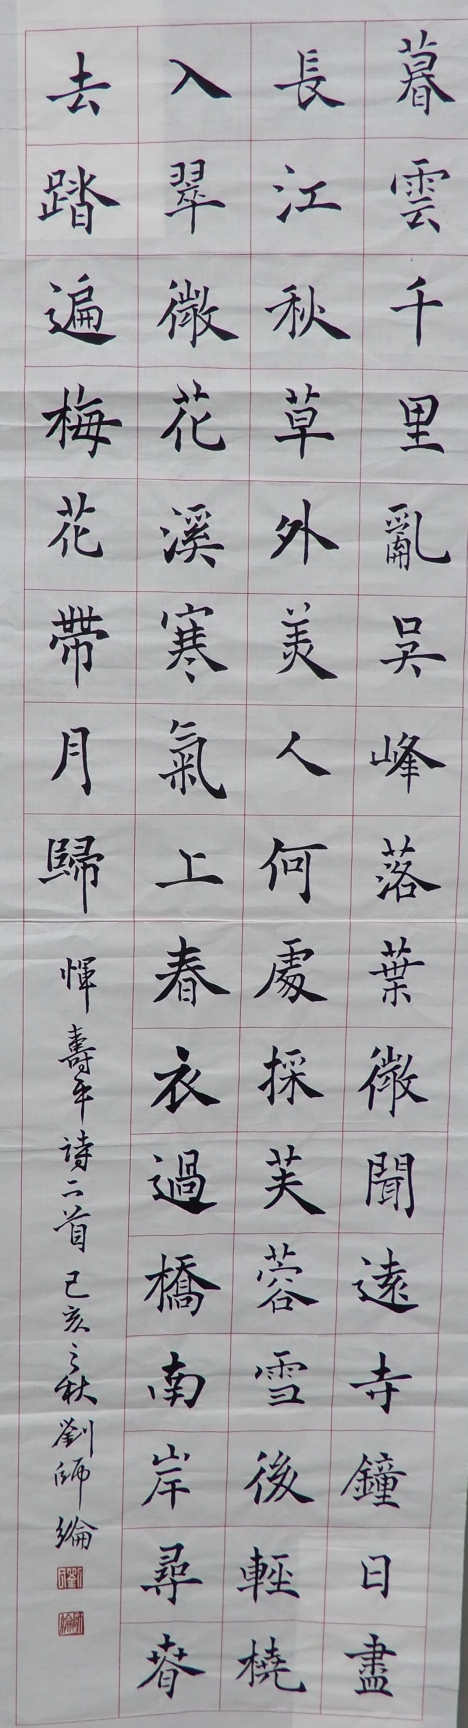 暮雲千里亂吳峰落葉微聞遠寺鐘日盡
長江秋草外美人何處採芙蓉雪後輕橈
入翠微花溪寒氣上春衣過橋南岸尋春
去踏遍梅花帶月歸
惲壽平詩二首 己亥之秋 劉師綸